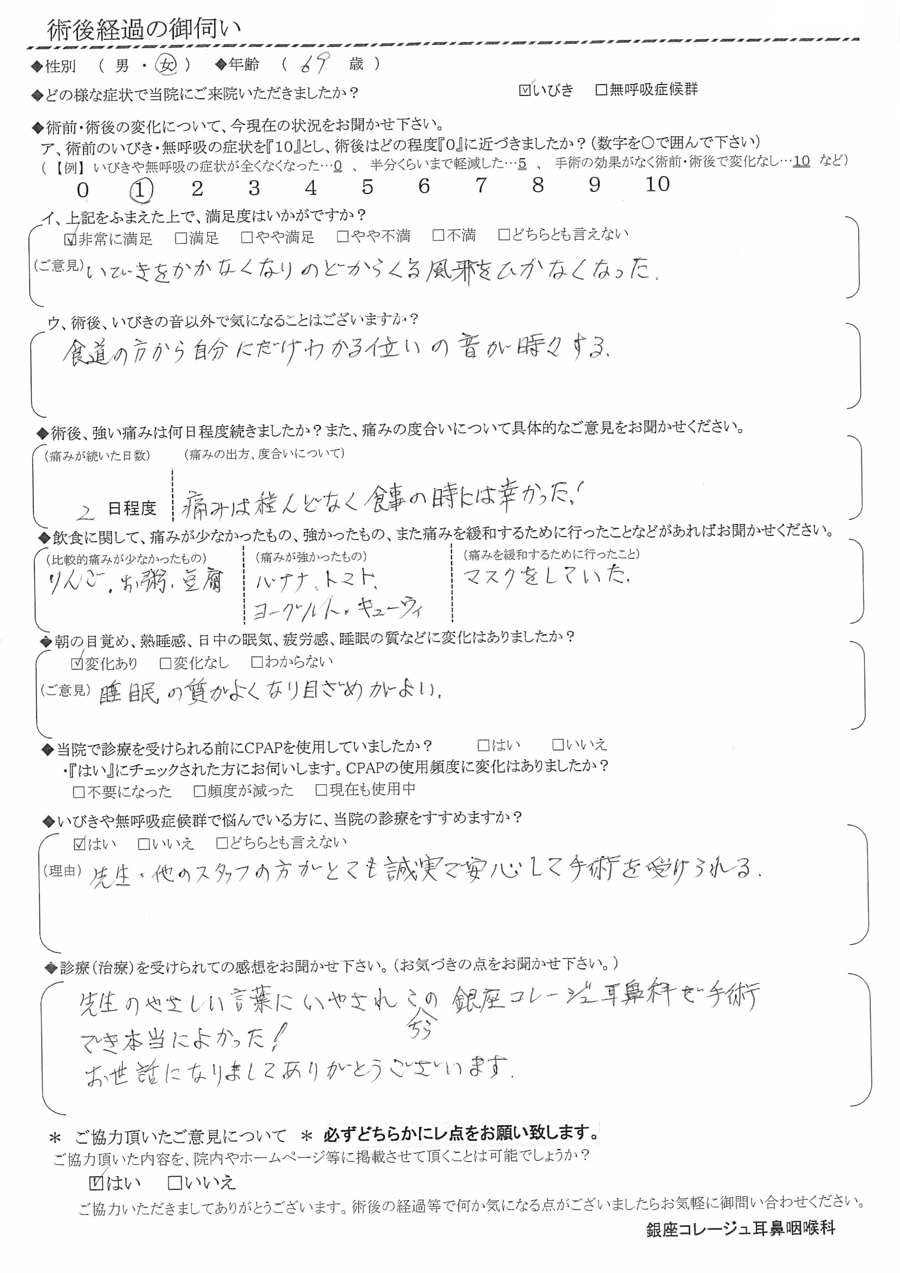 術後経過の御伺い
◆性別 ( 男 ・ 女 ) ◆年齢 ( 69 歳 )
◆どの様な症状で当院にご来院いただきましたか? ☑いびき □無呼吸症候群
◆術前・術後の変化について、今現在の状況をお聞かせ下さい。
ア、術前のいびき・無呼吸の症状を『10』とし、術後はどの程度『0』に近づきましたか?(数字を○で囲んで下さい)
(【例】いびきや無呼吸の症状が全くなくなった…0 、 半分くらいまで軽減した…5 、 手術の効果がなく術前・術後で変化なし…10 など)
0 1 2 3 4 5 6 7 8 9 10
イ、上記をふまえた上で、満足度はいかがですか?
☑非常に満足 □満足 □やや満足 □やや不満 □不満 □どちらとも言えない
(ご意見) いびきをかかなくなりのどからくる風邪をひかなくなった.
ウ、術後、いびきの音以外で気になることはございますか?
食道の方から自分にだけわかる位いの音が時々する.
◆術後、強い痛みは何日程度続きましたか?また、痛みの度合いについて具体的なご意見をお聞かせください。
(痛みが続いた日数) (痛みの出方、度合いについて)
2 日程度 痛みは殆んどなく食事の時には辛かった!
◆飲食に関して、痛みが少なかったもの、強かったもの、また痛みを緩和するために行ったことなどがあればお聞かせください。
(比較的痛みが少なかったもの) (痛みが強かったもの) (痛みを緩和するために行ったこと)
りんご.お粥.豆腐 バナナ、トマト、 マスクをしていた.
ヨーグルト、キューウィ
◆朝の目覚め、熟睡感、日中の眠気、疲労感、睡眠の質などに変化はありましたか?
☑変化あり □変化なし □わからない
(ご意見) 睡眠の質がよくなり目ざめがよい.
◆当院で診療を受けられる前にCPAPを使用していましたか? □はい □いいえ
・『はい』にチェックされた方にお伺いします。CPAPの使用頻度に変化はありましたか?
□不要になった □頻度が減った □現在も使用中
◆いびきや無呼吸症候群で悩んでいる方に、当院の診療をすすめますか?
☑はい □いいえ □どちらとも言えない
(理由) 先生・他のスタッフの方がとても誠実で安心して手術を受けられる.
◆診療(治療)を受けられての感想をお聞かせ下さい。(お気づきの点をお聞かせ下さい。)
先生のやさしい言葉にいやされこの銀座コレージュ耳鼻科で手術
ちら
でき本当によかった!
お世話になりましてありがとうございます.
＊ ご協力頂いたご意見について ＊ 必ずどちらかにレ点をお願い致します。
ご協力頂いた内容を、院内やホームページ等に掲載させて頂くことは可能でしょうか?
☑はい □いいえ
ご協力いただきましてありがとうございます。術後の経過等で何か気になる点がございましたらお気軽に御問い合わせください。
銀座コレージュ耳鼻咽喉科